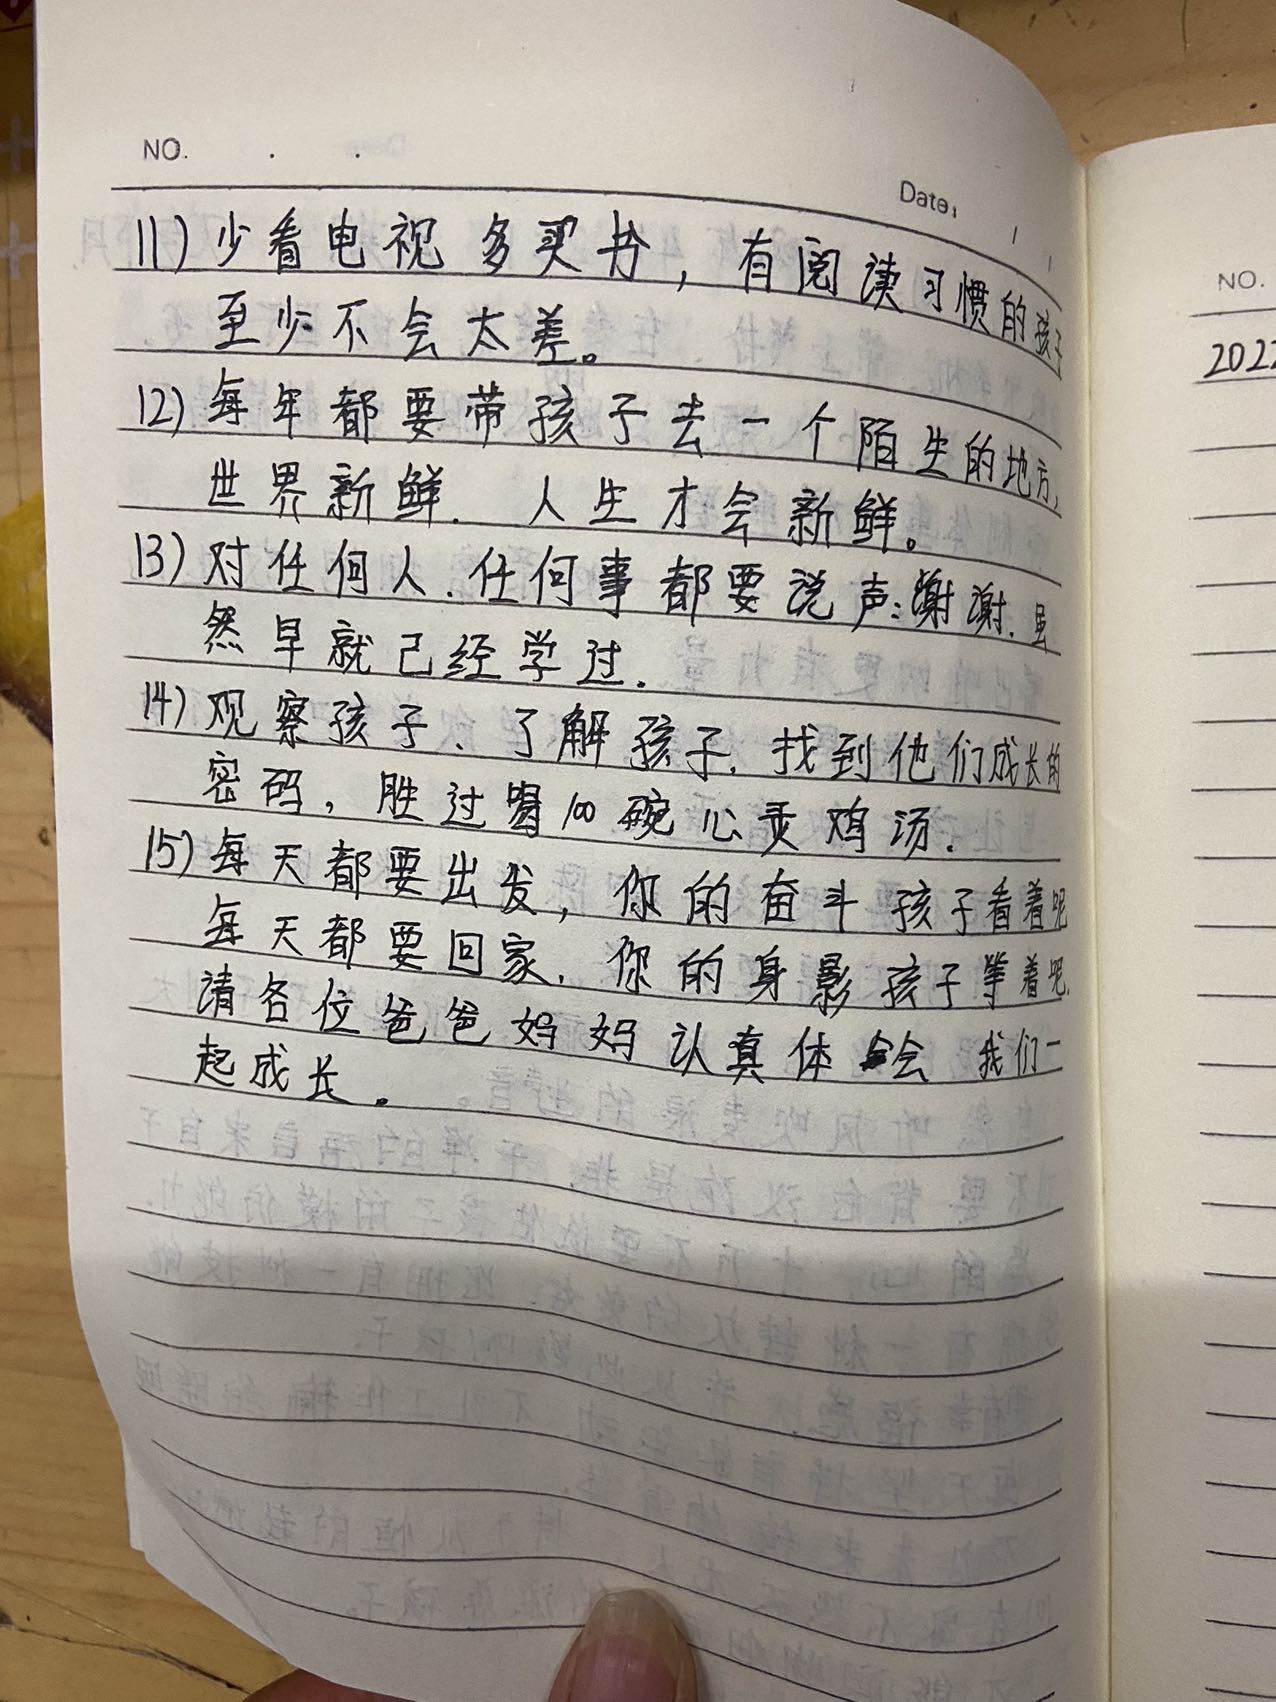 NO.
Date:
11) 少看电视多买书，有阅读习惯的孩子
至少不会太差。
12) 每年都要带孩子去一个陌生的地方，
世界新鲜．人生才会新鲜。
13) 对任何人．任何事都要说声：谢谢．虽
然早就己经学过．
14) 观察孩子、了解孩子．找到他们成长的
密码，胜过喝100碗心灵鸡汤．
15) 每天都要出发，你的奋斗孩子看着呢
每天都要回家．你的身影孩子等着呢．
请各位爸爸妈妈认真体会 我们一
起成长．
NO.
2022